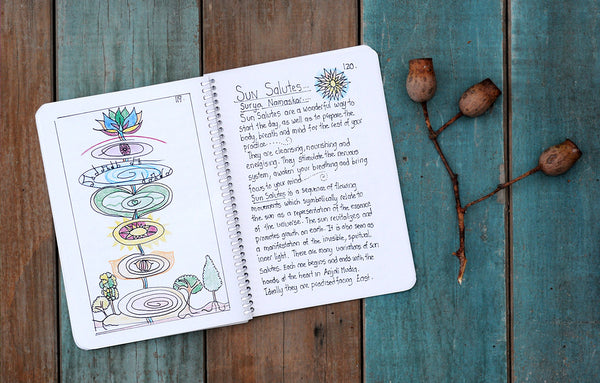 119.
120.
Sun Salutes...
Surya Namaskar....
Sun Salutes are a wonderful way to
start the day, as well as to prepare the
body, breath and mind for the rest of your
practice......
They are cleansing, nourishing and
energising. They stimulate the nervous
system, awaken your breathing and bring
focus to your mind
Sun Salutes is a sequence of flowing
movements which symbolically relate to
the sun as a representation of the essence
of the universe. The sun revitalizes and
promotes growth on earth. It is also seen as
a manifestation of the invisible, spiritual
inner light. There are many variations of Sun
Salutes. Each one begins and ends with the
hands at the heart in Anjali Mudra.
Ideally they are practised facing East.